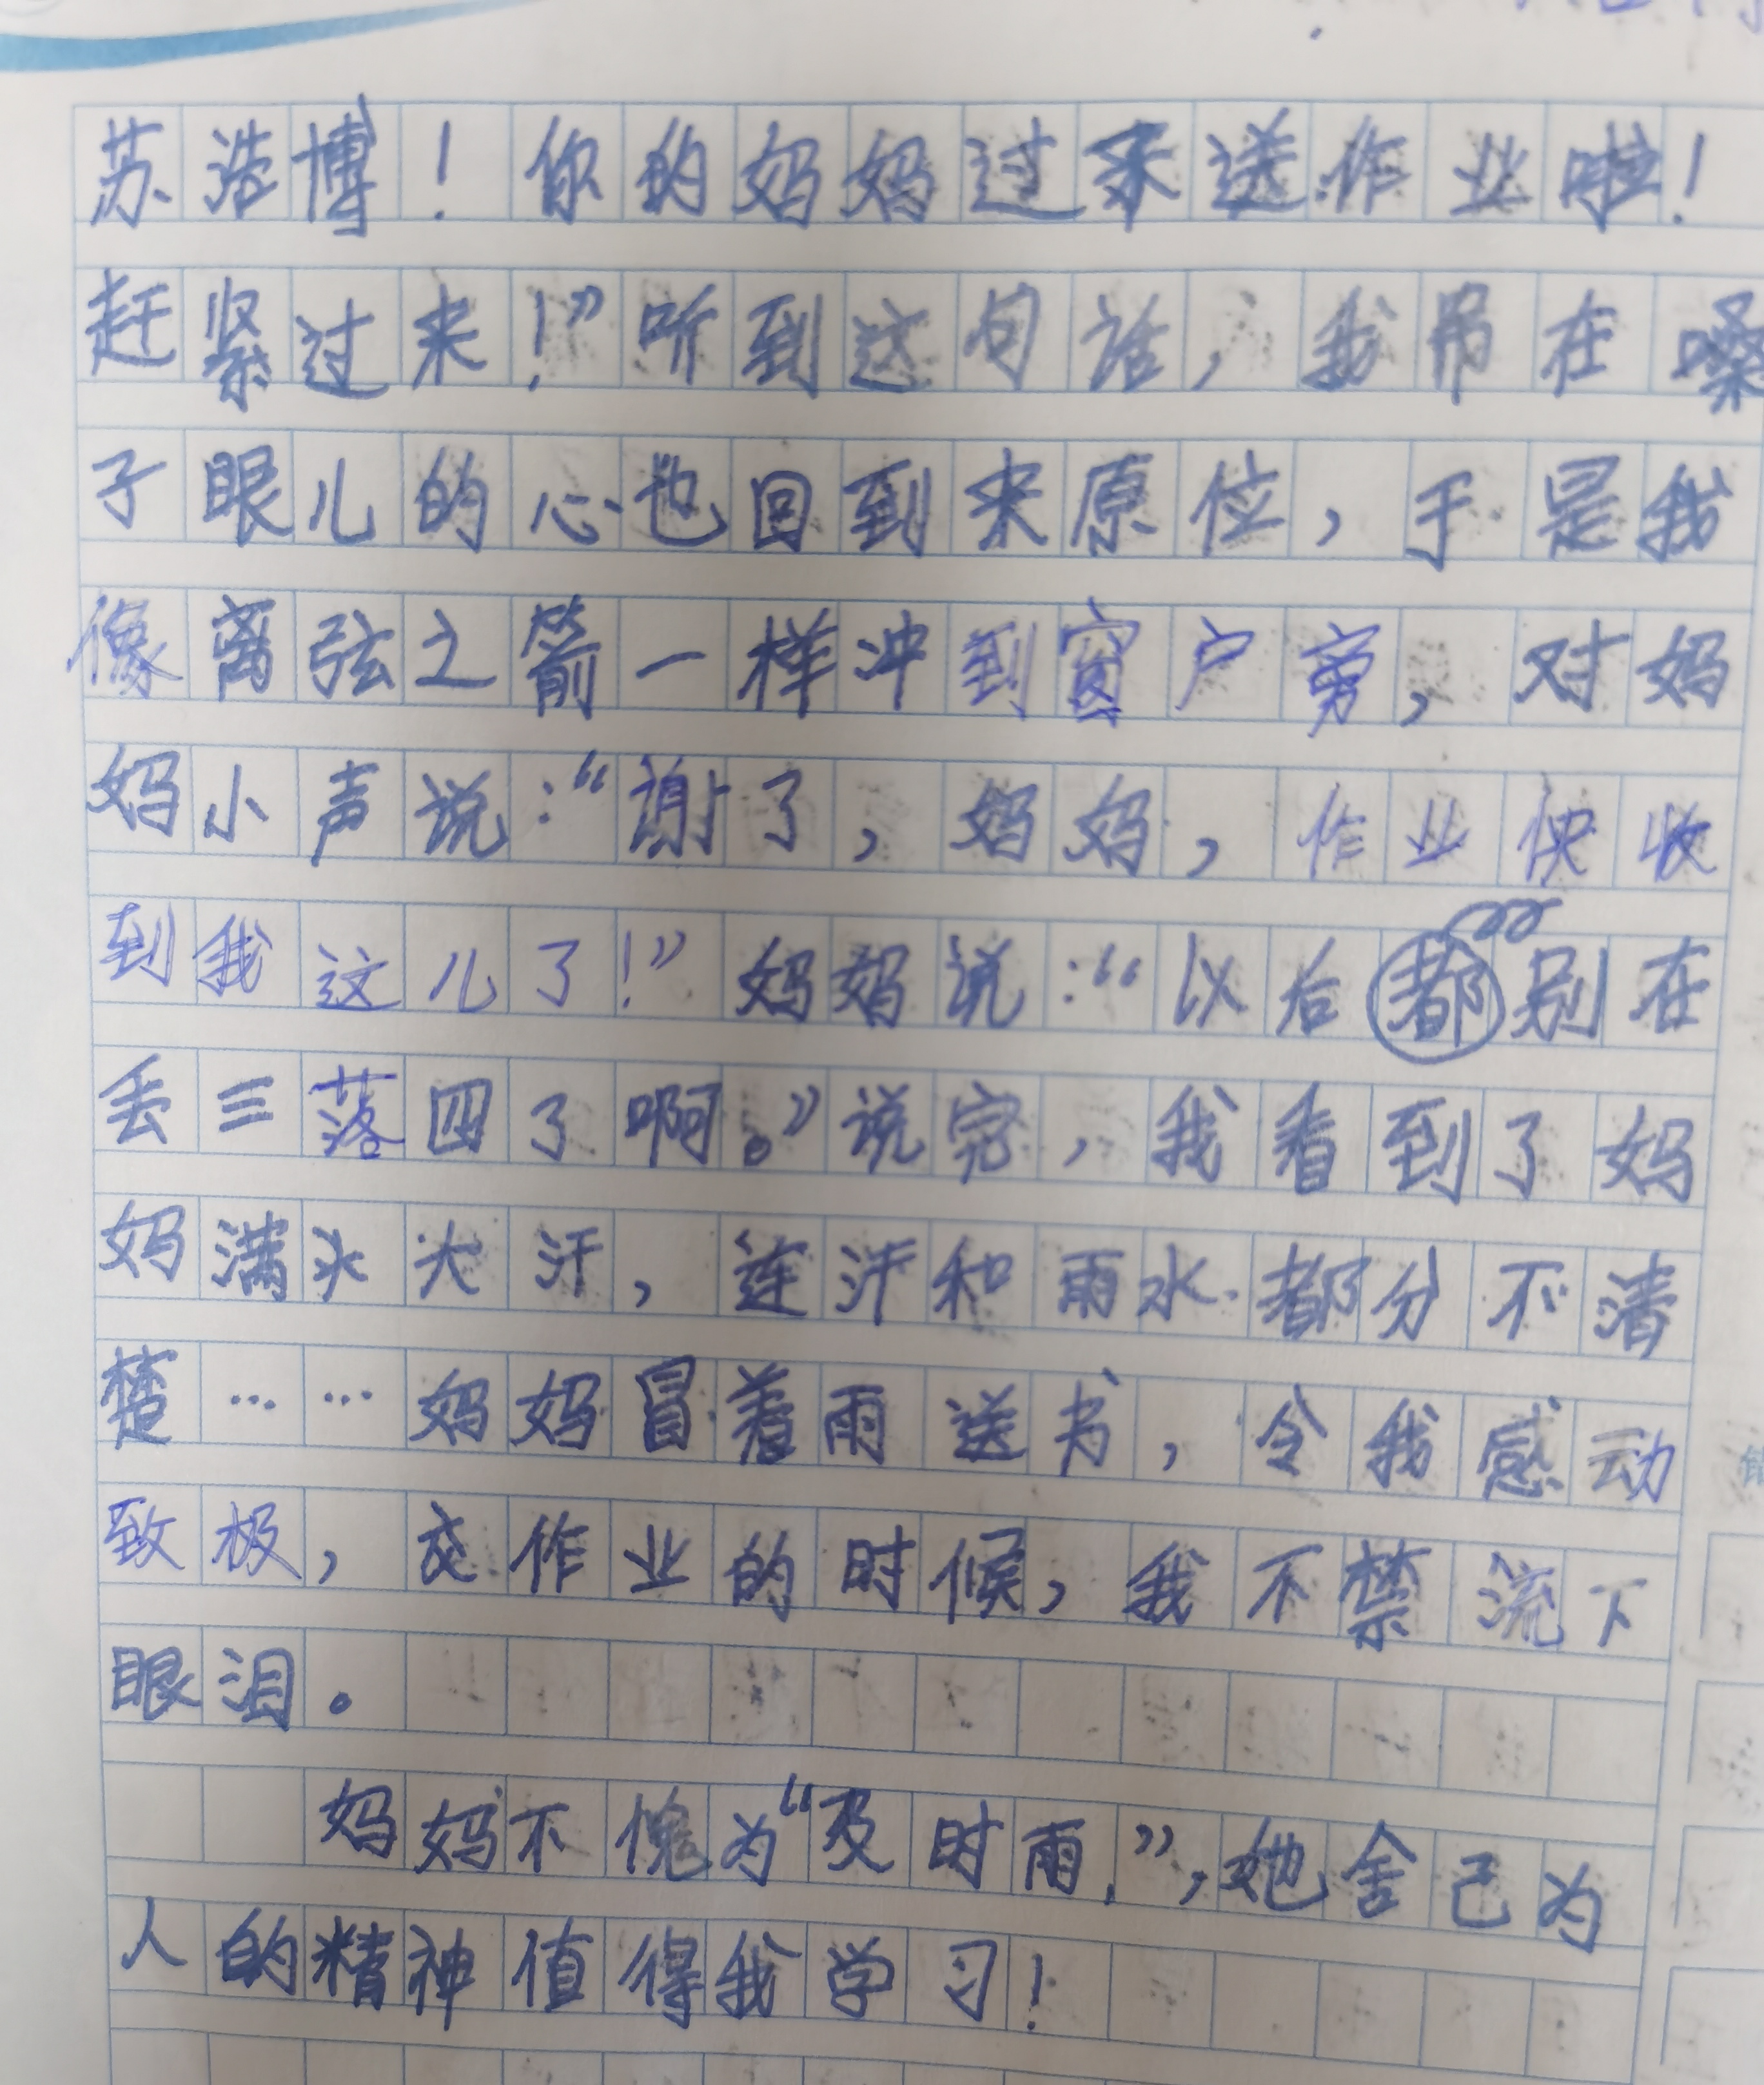 苏浩博！你的妈妈过来送作业啦！
赶紧过来！”听到这句话，我吊在嗓
子眼儿的心也回到来原位，于是我
像离弦之箭一样冲到窗户旁，对妈
妈小声说：“谢了，妈妈，作业快收
到我这儿了！”妈妈说：“以后都别在
丢三落四了啊。”说完，我看到了妈
妈满头大汗，连汗和雨水都分不清
楚……妈妈冒着雨送书，令我感动
致极，交作业的时候，我不禁流下
眼泪。
妈妈不愧为“及时雨”，她舍己为
人的精神值得我学习！